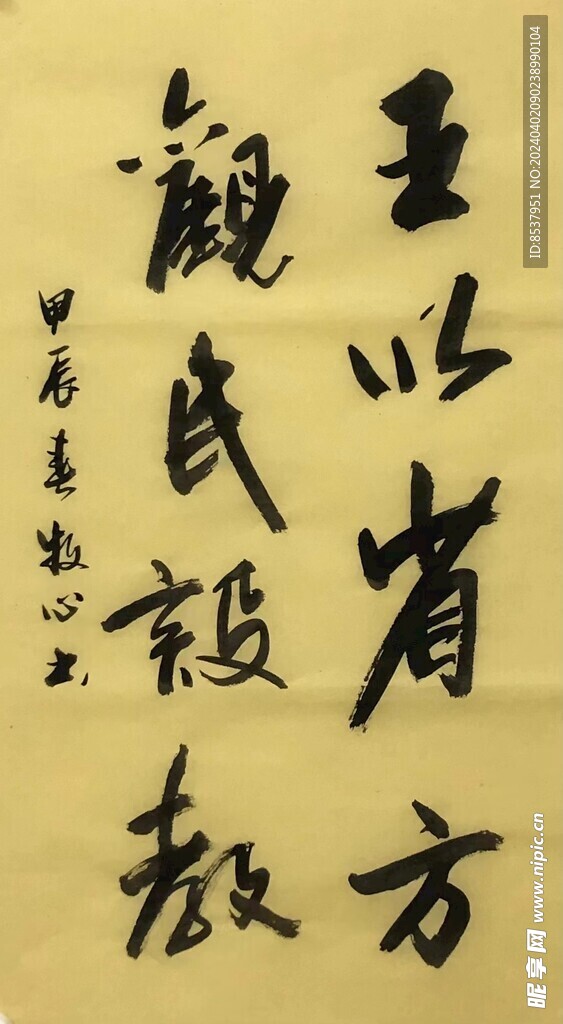 王以省方
觀民設教
甲辰春牧心书
ID:8537951 NO:20240402090238990104
昵享网 www.nipic.cn